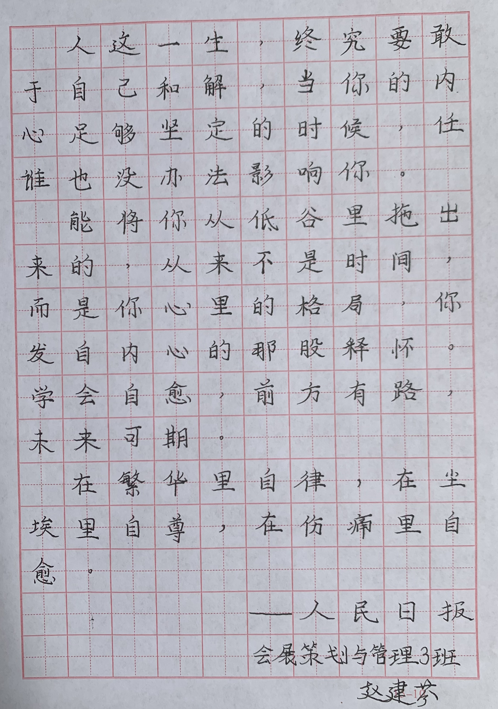 人这一生，终究要敢
于自己和解，当你的内
心足够坚定的时候，任
谁也没办法影响你。
能将你从低谷里拖出
来的，从来不是时间，
而是你心里的格局，你
发自内心的那股释怀。
学会自愈，前方有路，
未来可期。
在繁华里自律，在尘
埃里自尊，在伤痛里自
愈。
——人民日报
会展策划与管理3班
赵建芬